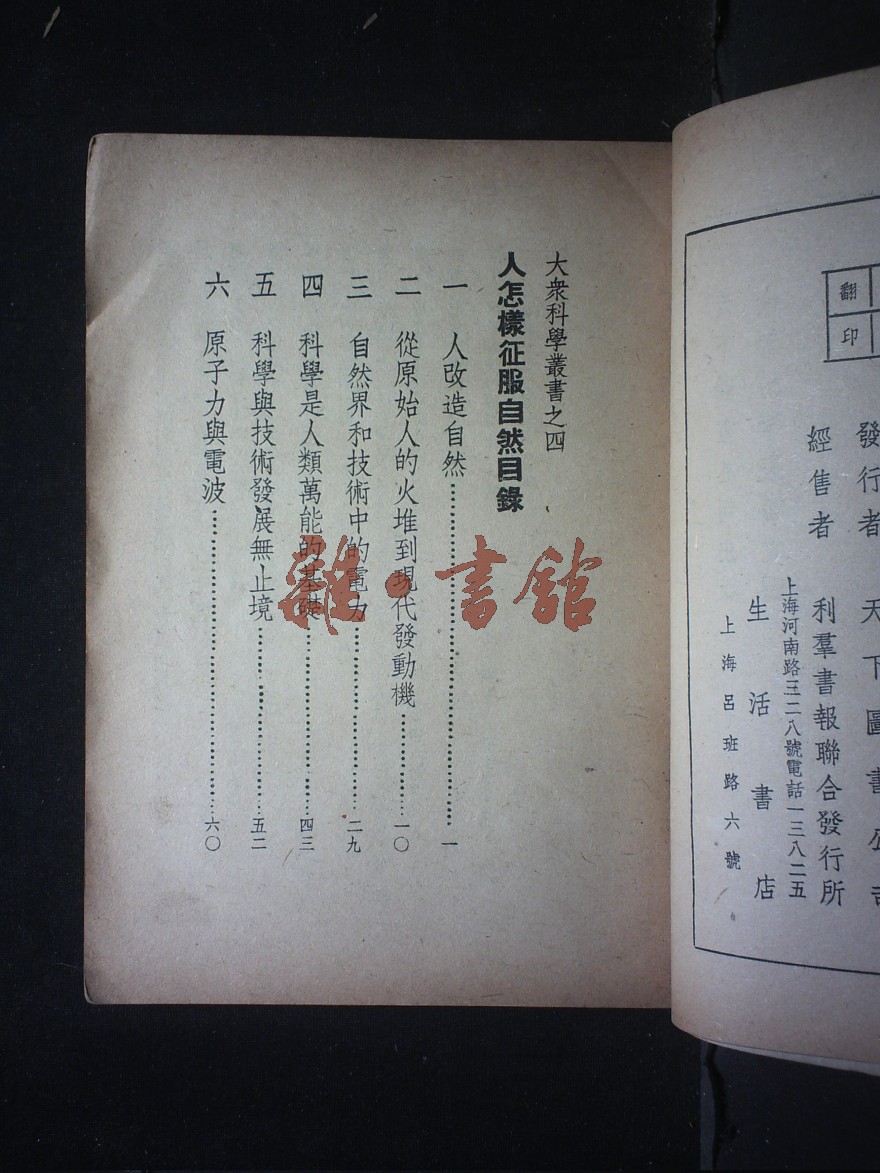 翻印
發行者 天下圖書公
經售者 利羣書報聯合發行所
上海河南路三二八號電話一三八二五
生活書店
上海呂班路六號
大衆科學叢書之四
人怎樣征服自然目錄
一 人改造自然……一
二 從原始人的火堆到現代發動機……一〇
三 自然界和技術中的電力……二九
四 科學是人類萬能的基礎……四三
五 科學與技術發展無止境……五二
六 原子力與電波……六〇
雜·書館